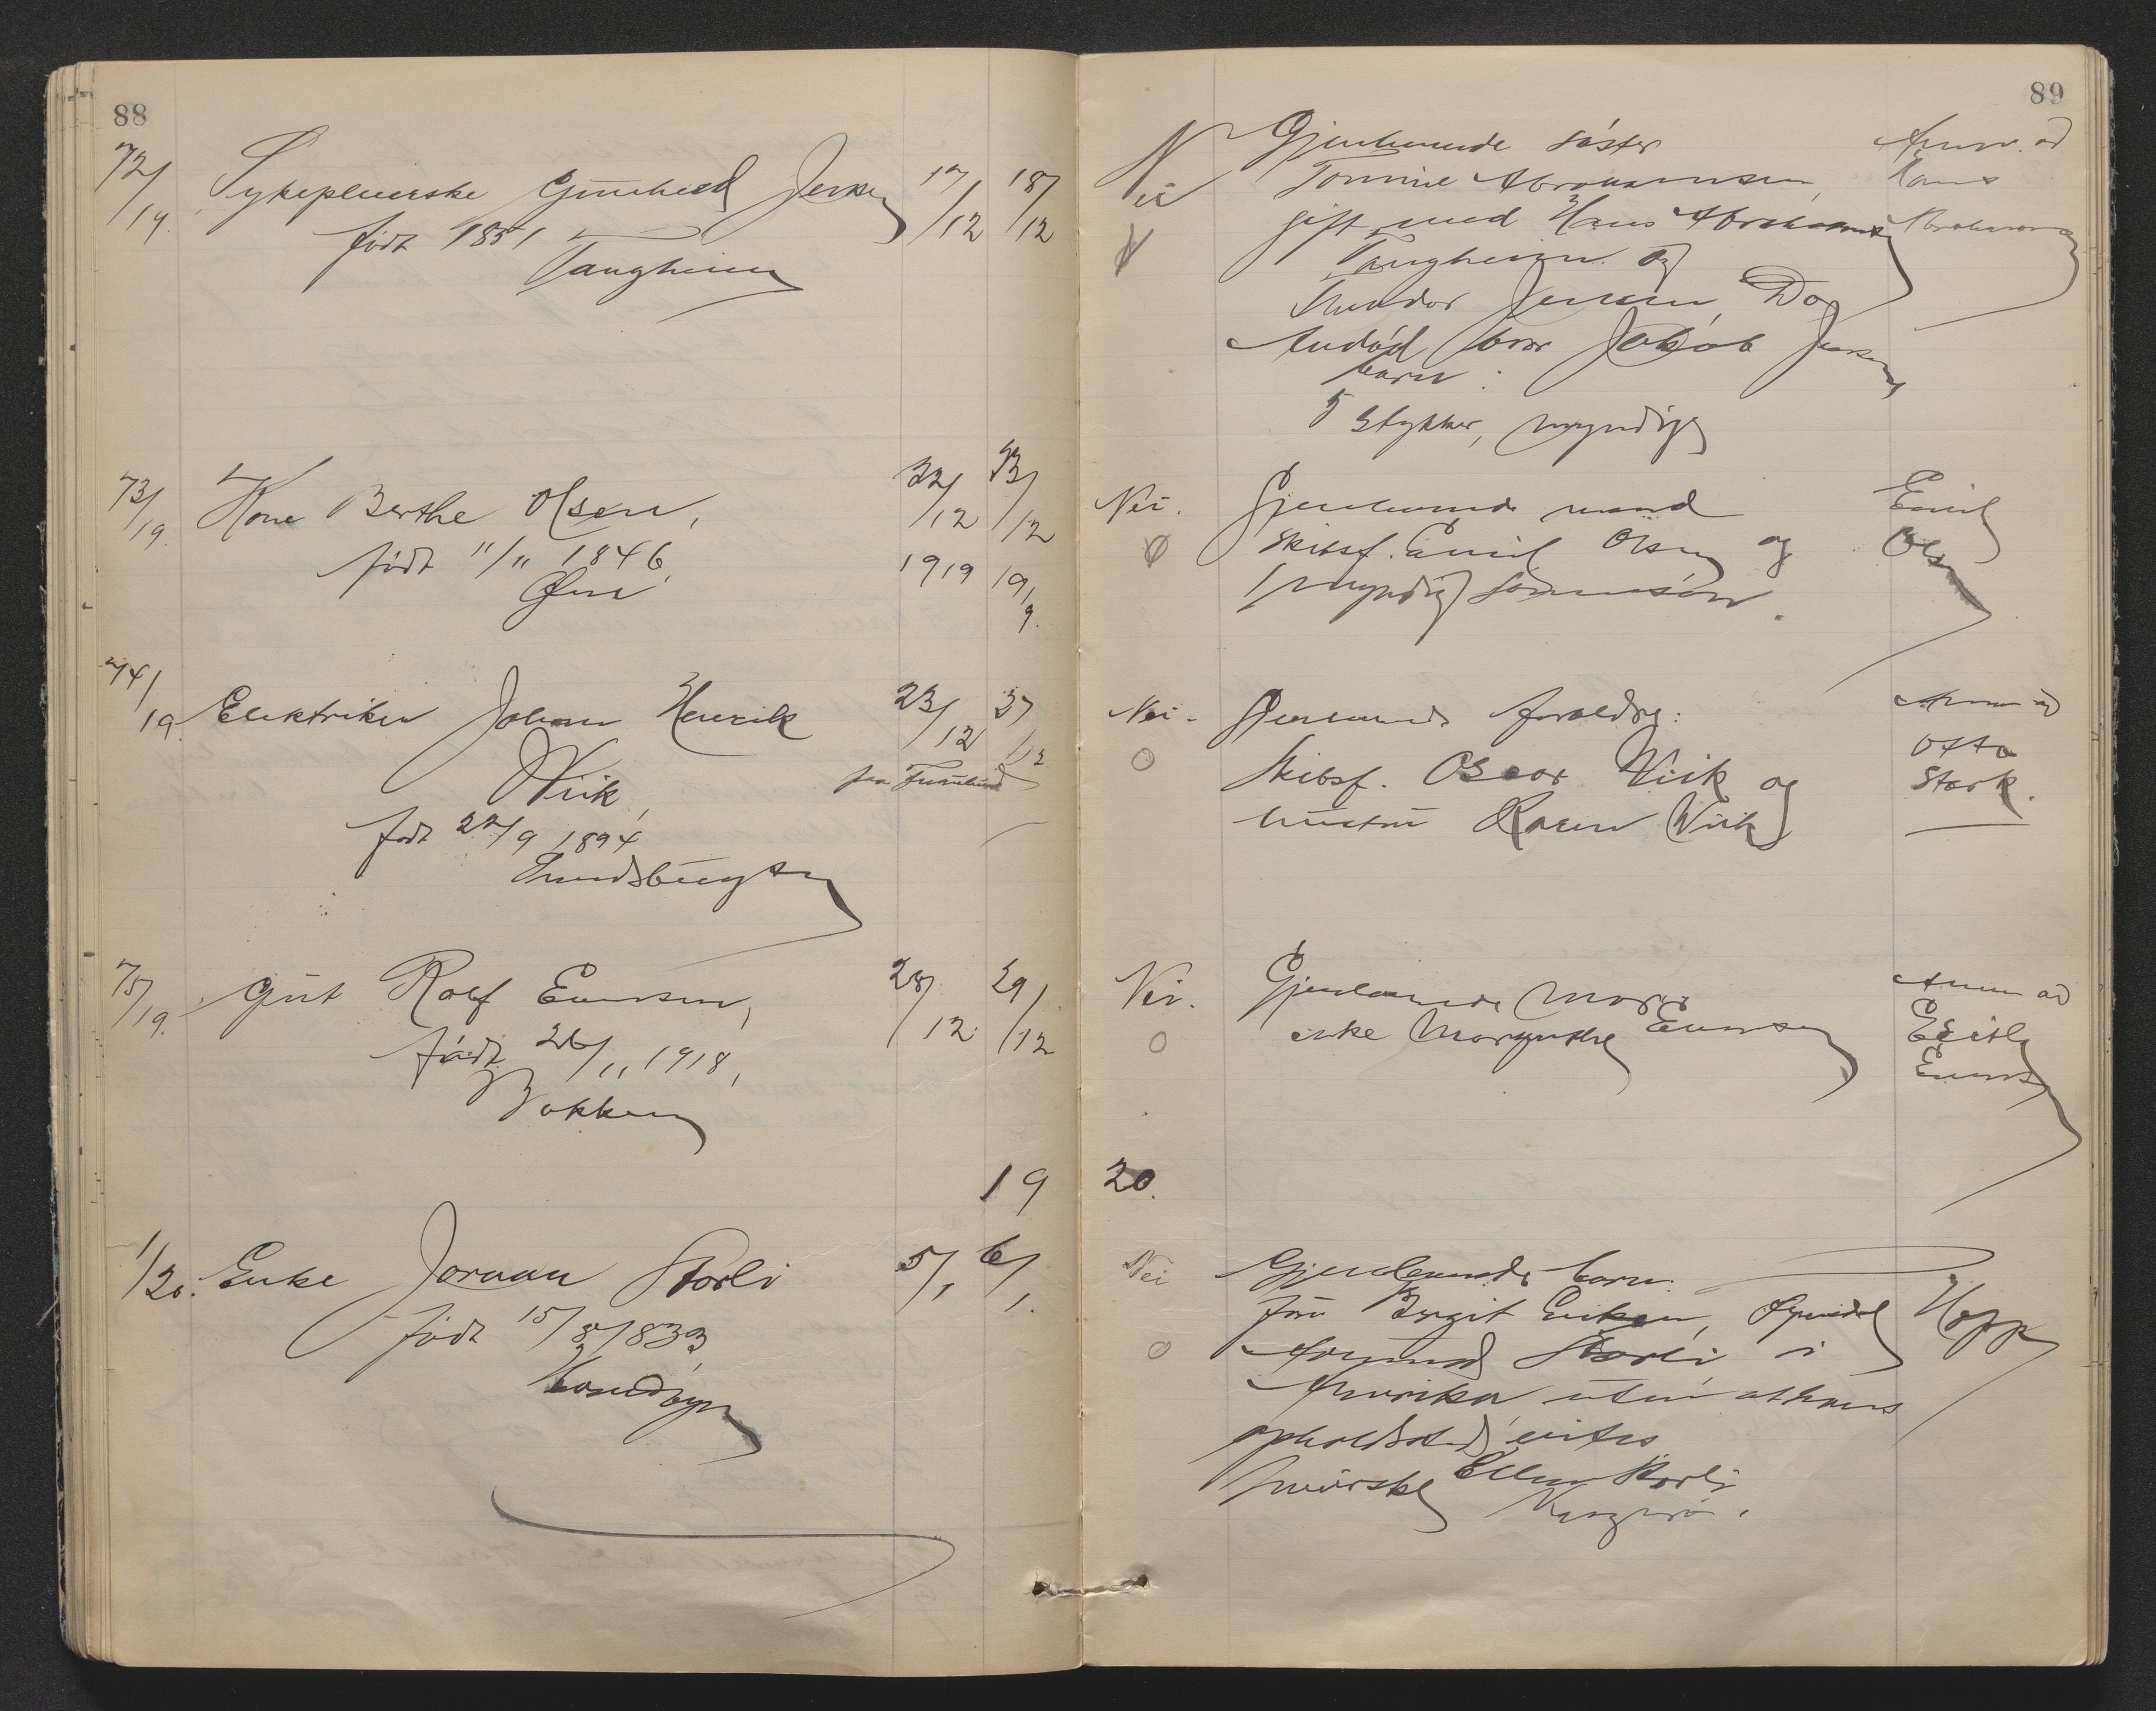 88
72/19. Sykepleierske Gunhild Jensen 17/12 18/12
født 1851
Tangheim
73/19. Kone Berthe Olsen, 22/12 23/12
født "/" 1846, 1919 19/9.
74/19. Elektriker Johan Henrik 23/12
Wiik,
født 22/9 1894
75/19. Gut Rolf Evensen, 28/12 29/12
født 26/11 1918,
Bakken
19
1/20. Enke Storli 5/1 6/1.
født 15/8 1833,
89
Nei Gjenlevende søster
Tomine Abrahamsen,
gift med Hans Abrahamsen
Tangheim og
Jensen, Do
bror Jakob Jensen
barn:
5 stykker, myndige
Anm. av
Hans
Abrahamsen
Nei. Gjenlevende mand
skibsf. Emil Olsen og
1 myndig
Emil
Olsen
Nei. Gjenlevende foreldre:
Skibsf. Oscar Wiik og
hustru Karen Wiik
Anm av
Otto
Stark.
Nei. Gjenlevende mor
enke Evensen
Anm av
Evensen
20.
Nei Gjenlevende barn.
fru Birgit
Storli i
Amerika uten at hans
opholdssted vites
Ellen Storli
Hopp